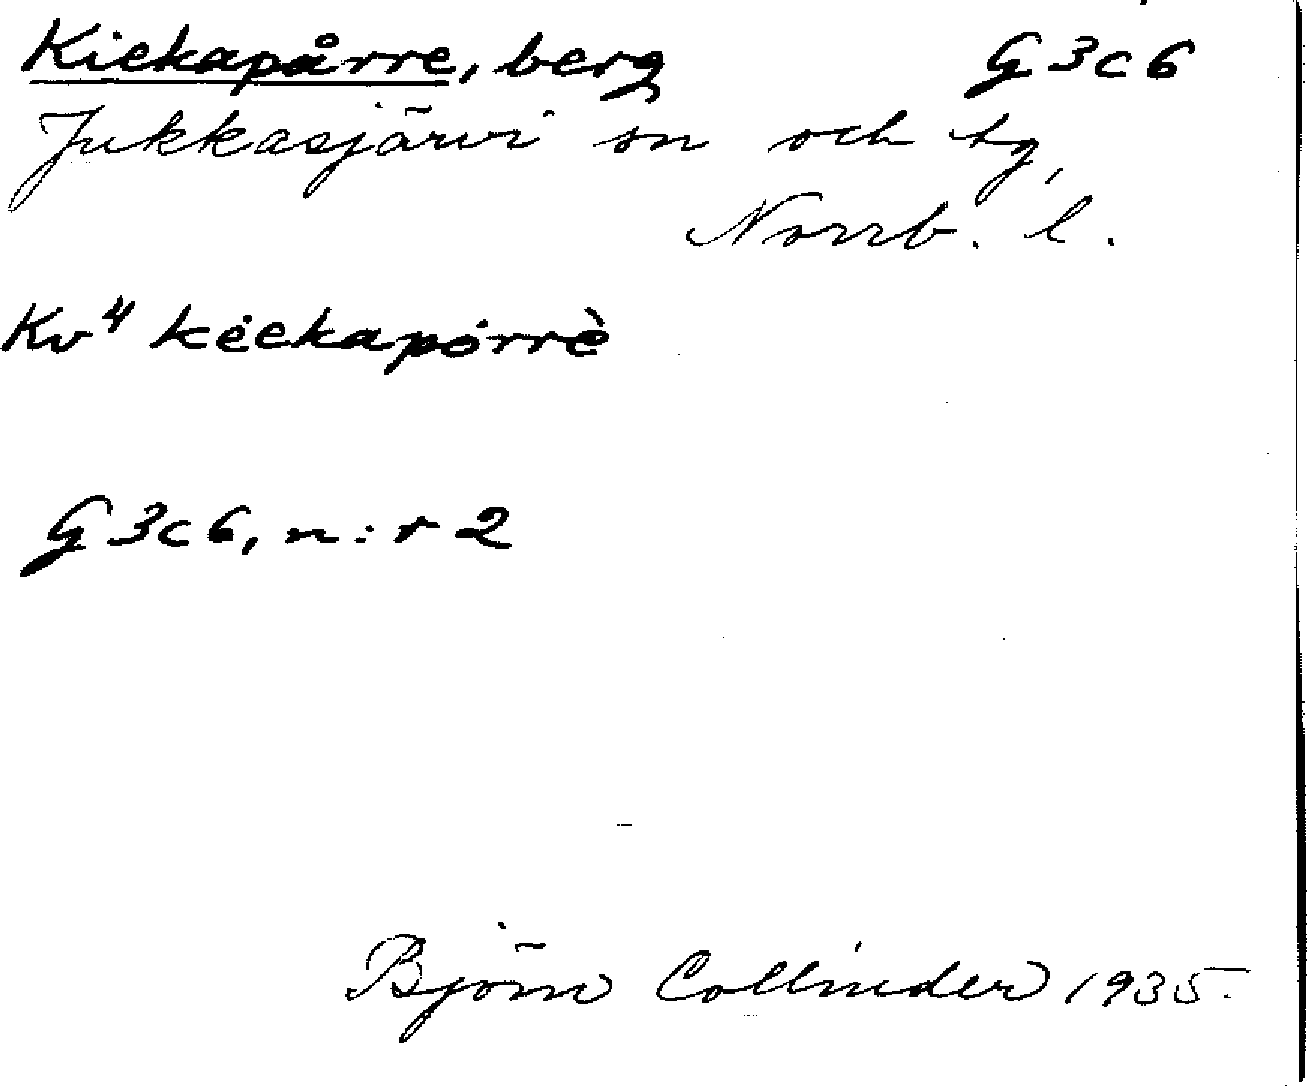 Kiekapårre, berg G3c6
Jukkasjärvi sn och tg,
Norrb. l.
Kv⁴ kėekapȯrrè
G3c6, n:r 2
Björn Collinder 1935.